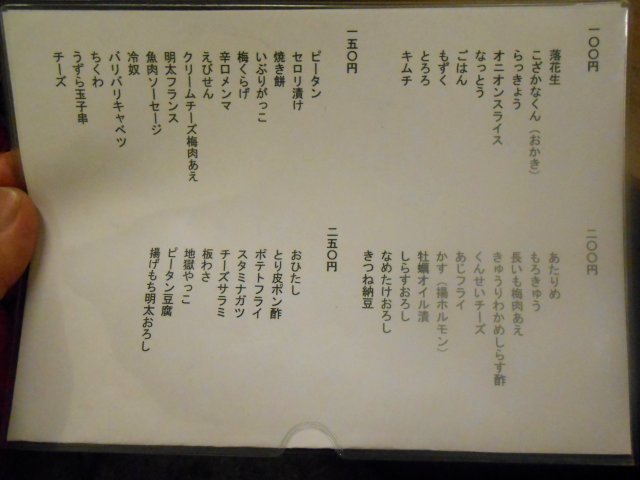 一〇〇円
落花生
こざかなくん（おかき）
らっきょう
オニオンスライス
なっとう
ごはん
もずく
とろろ
キムチ
一五〇円
ピータン
セロリ漬け
焼き餅
いぶりがっこ
梅くらげ
辛口メンマ
えびせん
クリームチーズ梅肉あえ
明太フランス
魚肉ソーセージ
冷奴
バリバリキャベツ
ちくわ
うずら玉子串
チーズ
二〇〇円
あたりめ
もろきゅう
長いも梅肉あえ
きゅうりわかめしらす酢
くんせいチーズ
あじフライ
かす（揚ホルモン）
牡蠣オイル漬
しらすおろし
なめたけおろし
きつね納豆
二五〇円
おひたし
とり皮ポン酢
ポテトフライ
スタミナガツ
チーズサラミ
板わさ
地獄やっこ
ピータン豆腐
揚げもち明太おろし